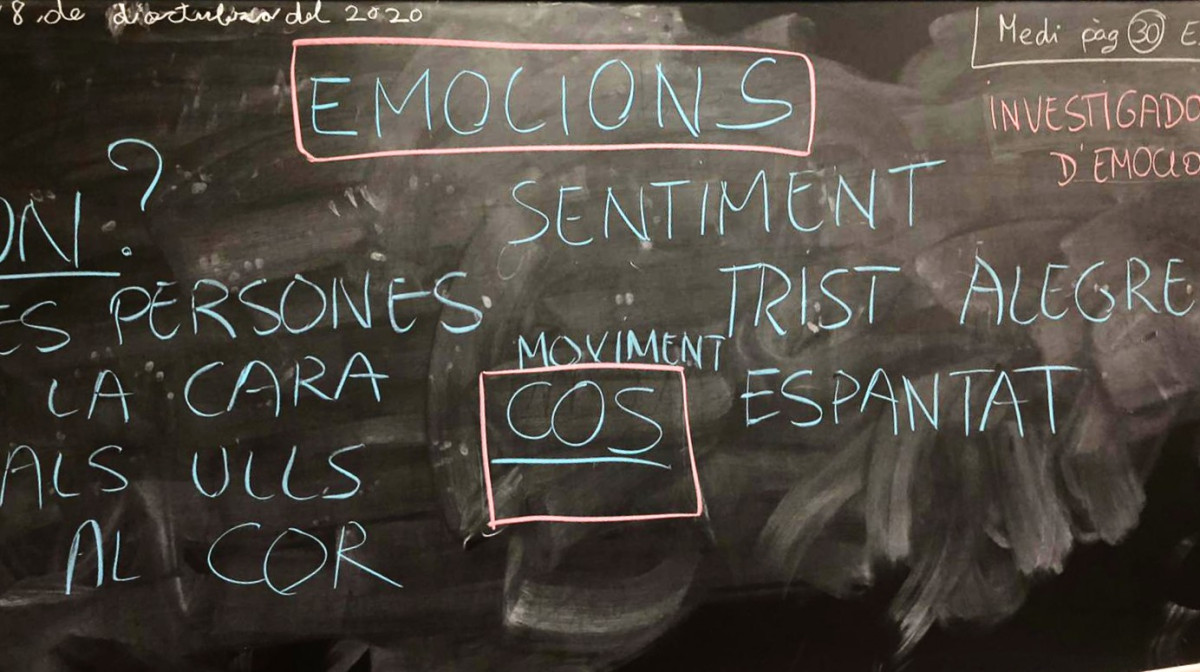 8 de d'octubre del 2020
Medi pàg 30 E
EMOCIONS
INVESTIGADO
D'EMOCIO
ON?
SENTIMENT
ES PERSONES
TRIST ALEGRE
MOVIMENT
LA CARA
COS
ESPANTAT
ALS ULLS
AL COR